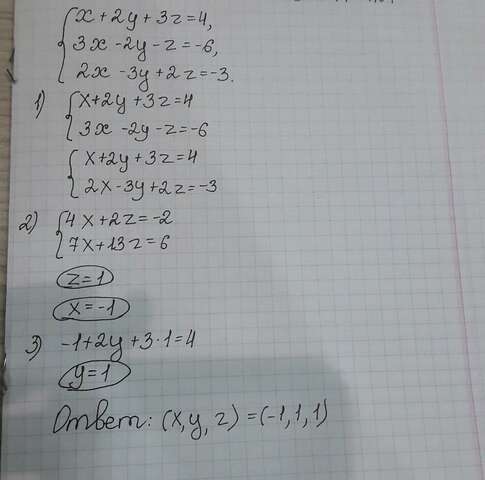 x+2y+3z=4,
3x-2y-z=-6,
2x-3y+2z=-3.
1) x+2y+3z=4
3x-2y-z=-6
x+2y+3z=4
2x-3y+2z=-3
2) 4x+2z=-2
7x+13z=6
z=1
x=-1
3) -1+2y+3·1=4
y=1
Ответ: (x,y,z)=(-1,1,1)